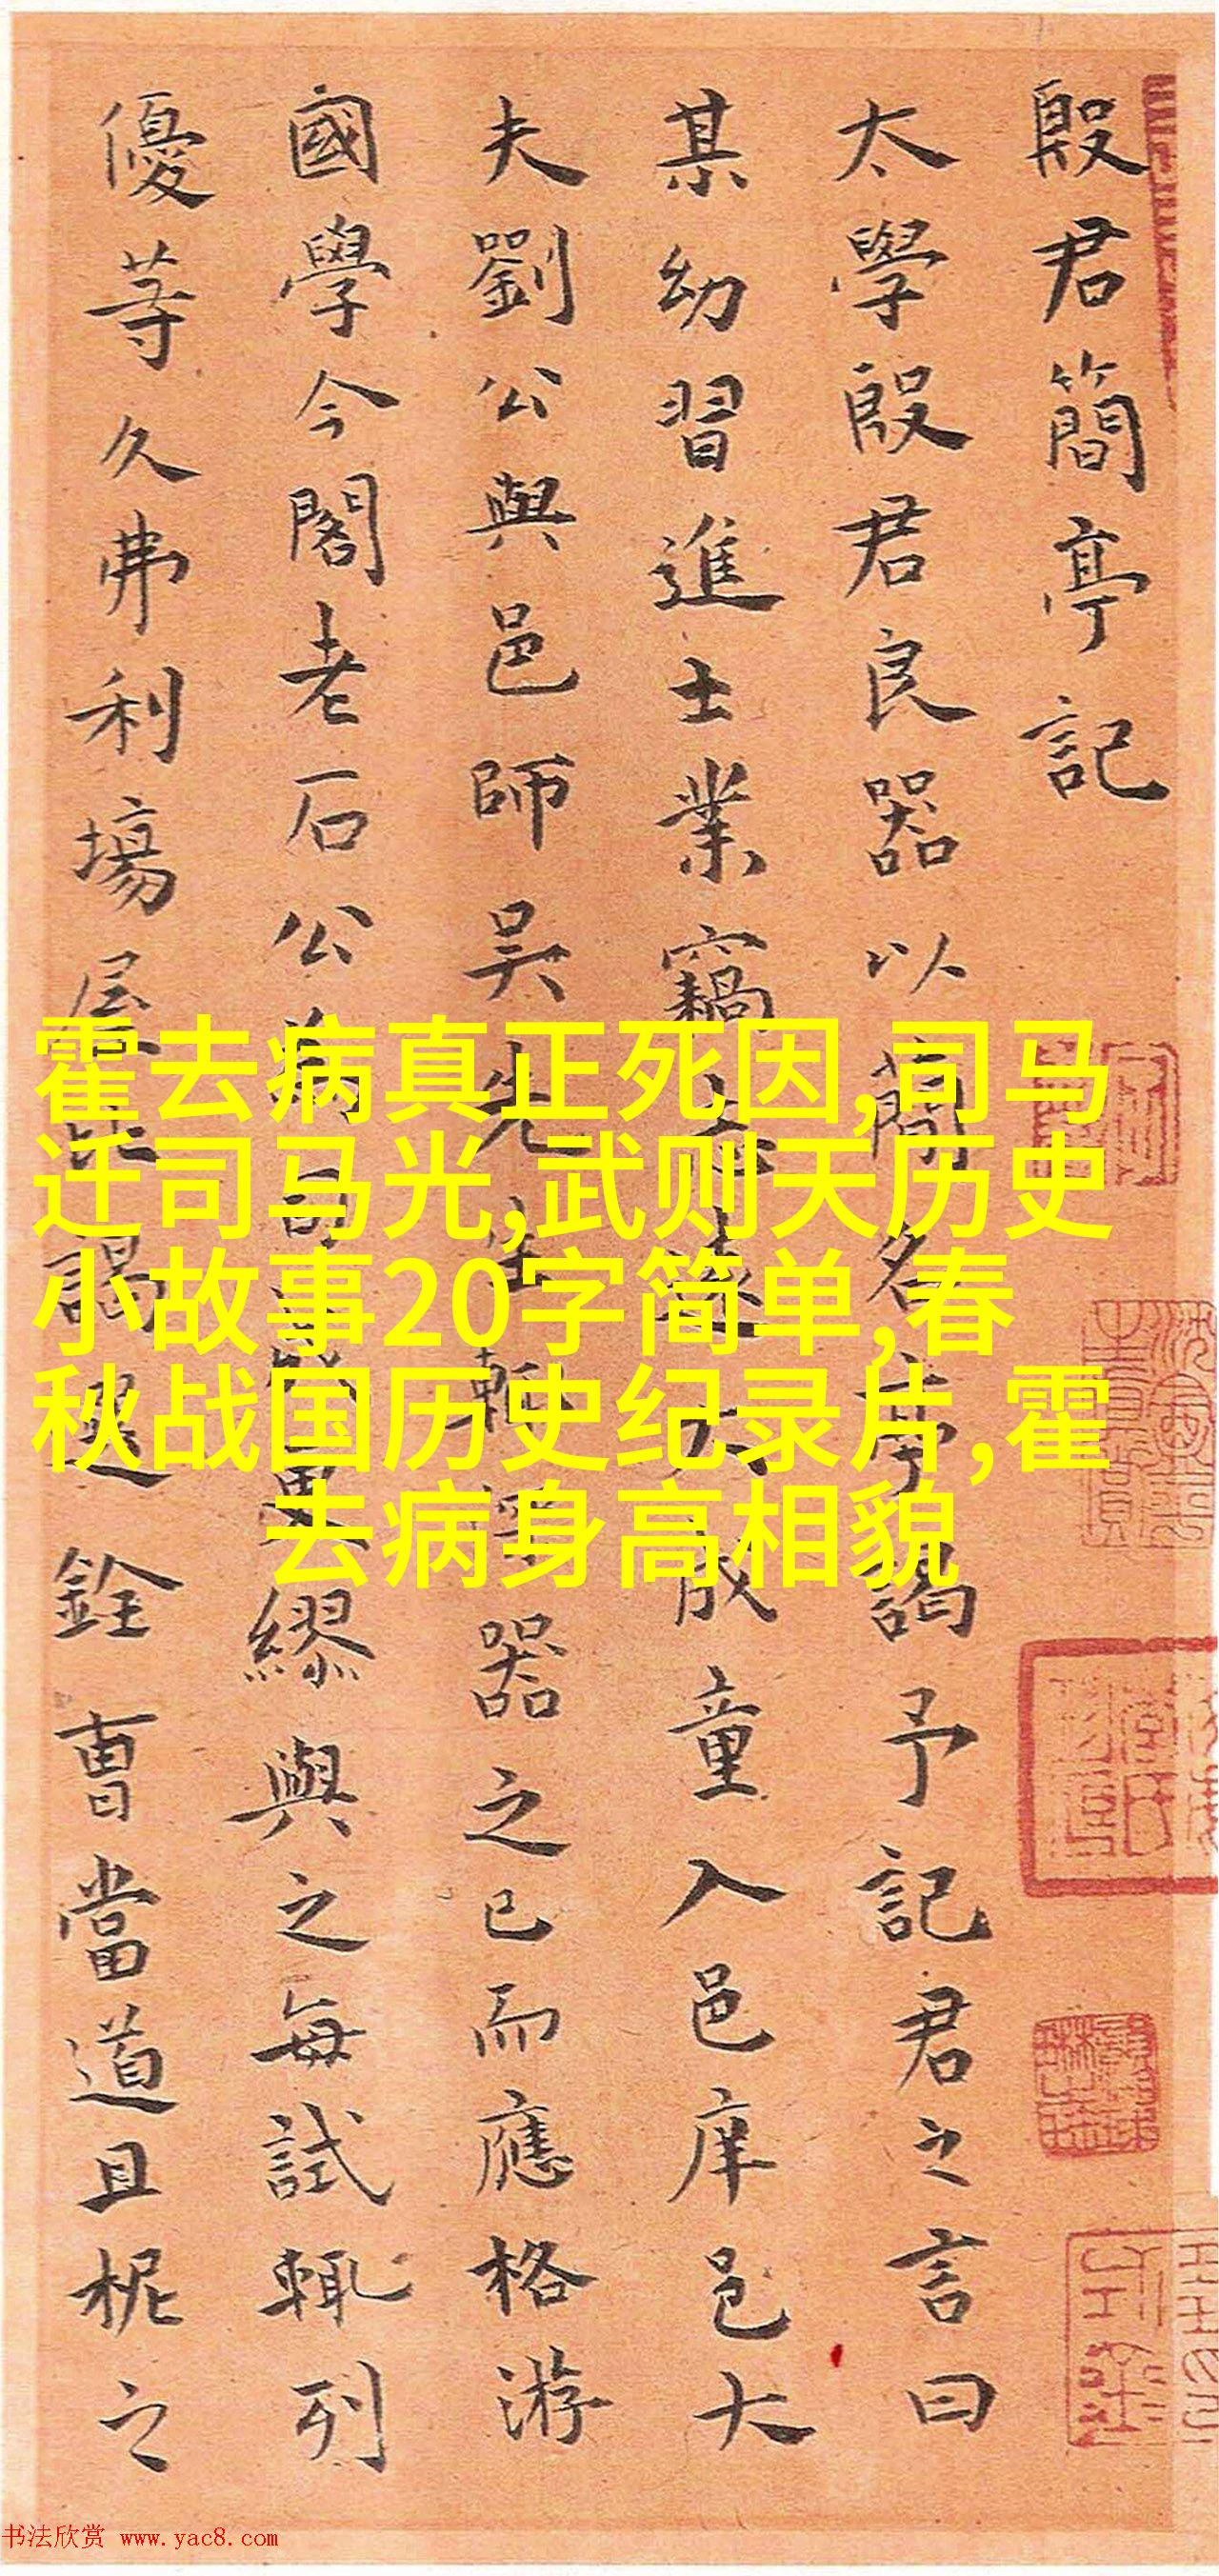 殷君簡亭記
太學殷君良器以簡名亭謁予記君之言曰
某幼習進士業竊志遠大成童入邑庠邑大
夫劉公與邑師吳先生輒器之已而應格游
國學今閣老石公為司繆與之每試輒列
優等久弗利場屋謁選銓曹當道且柅之
霍去病真正死因,司马
迁司马光,武则天历史
小故事20字简单,春
秋战国历史纪录片,霍
去病身高相貌
书法欣赏 www.yac8.com